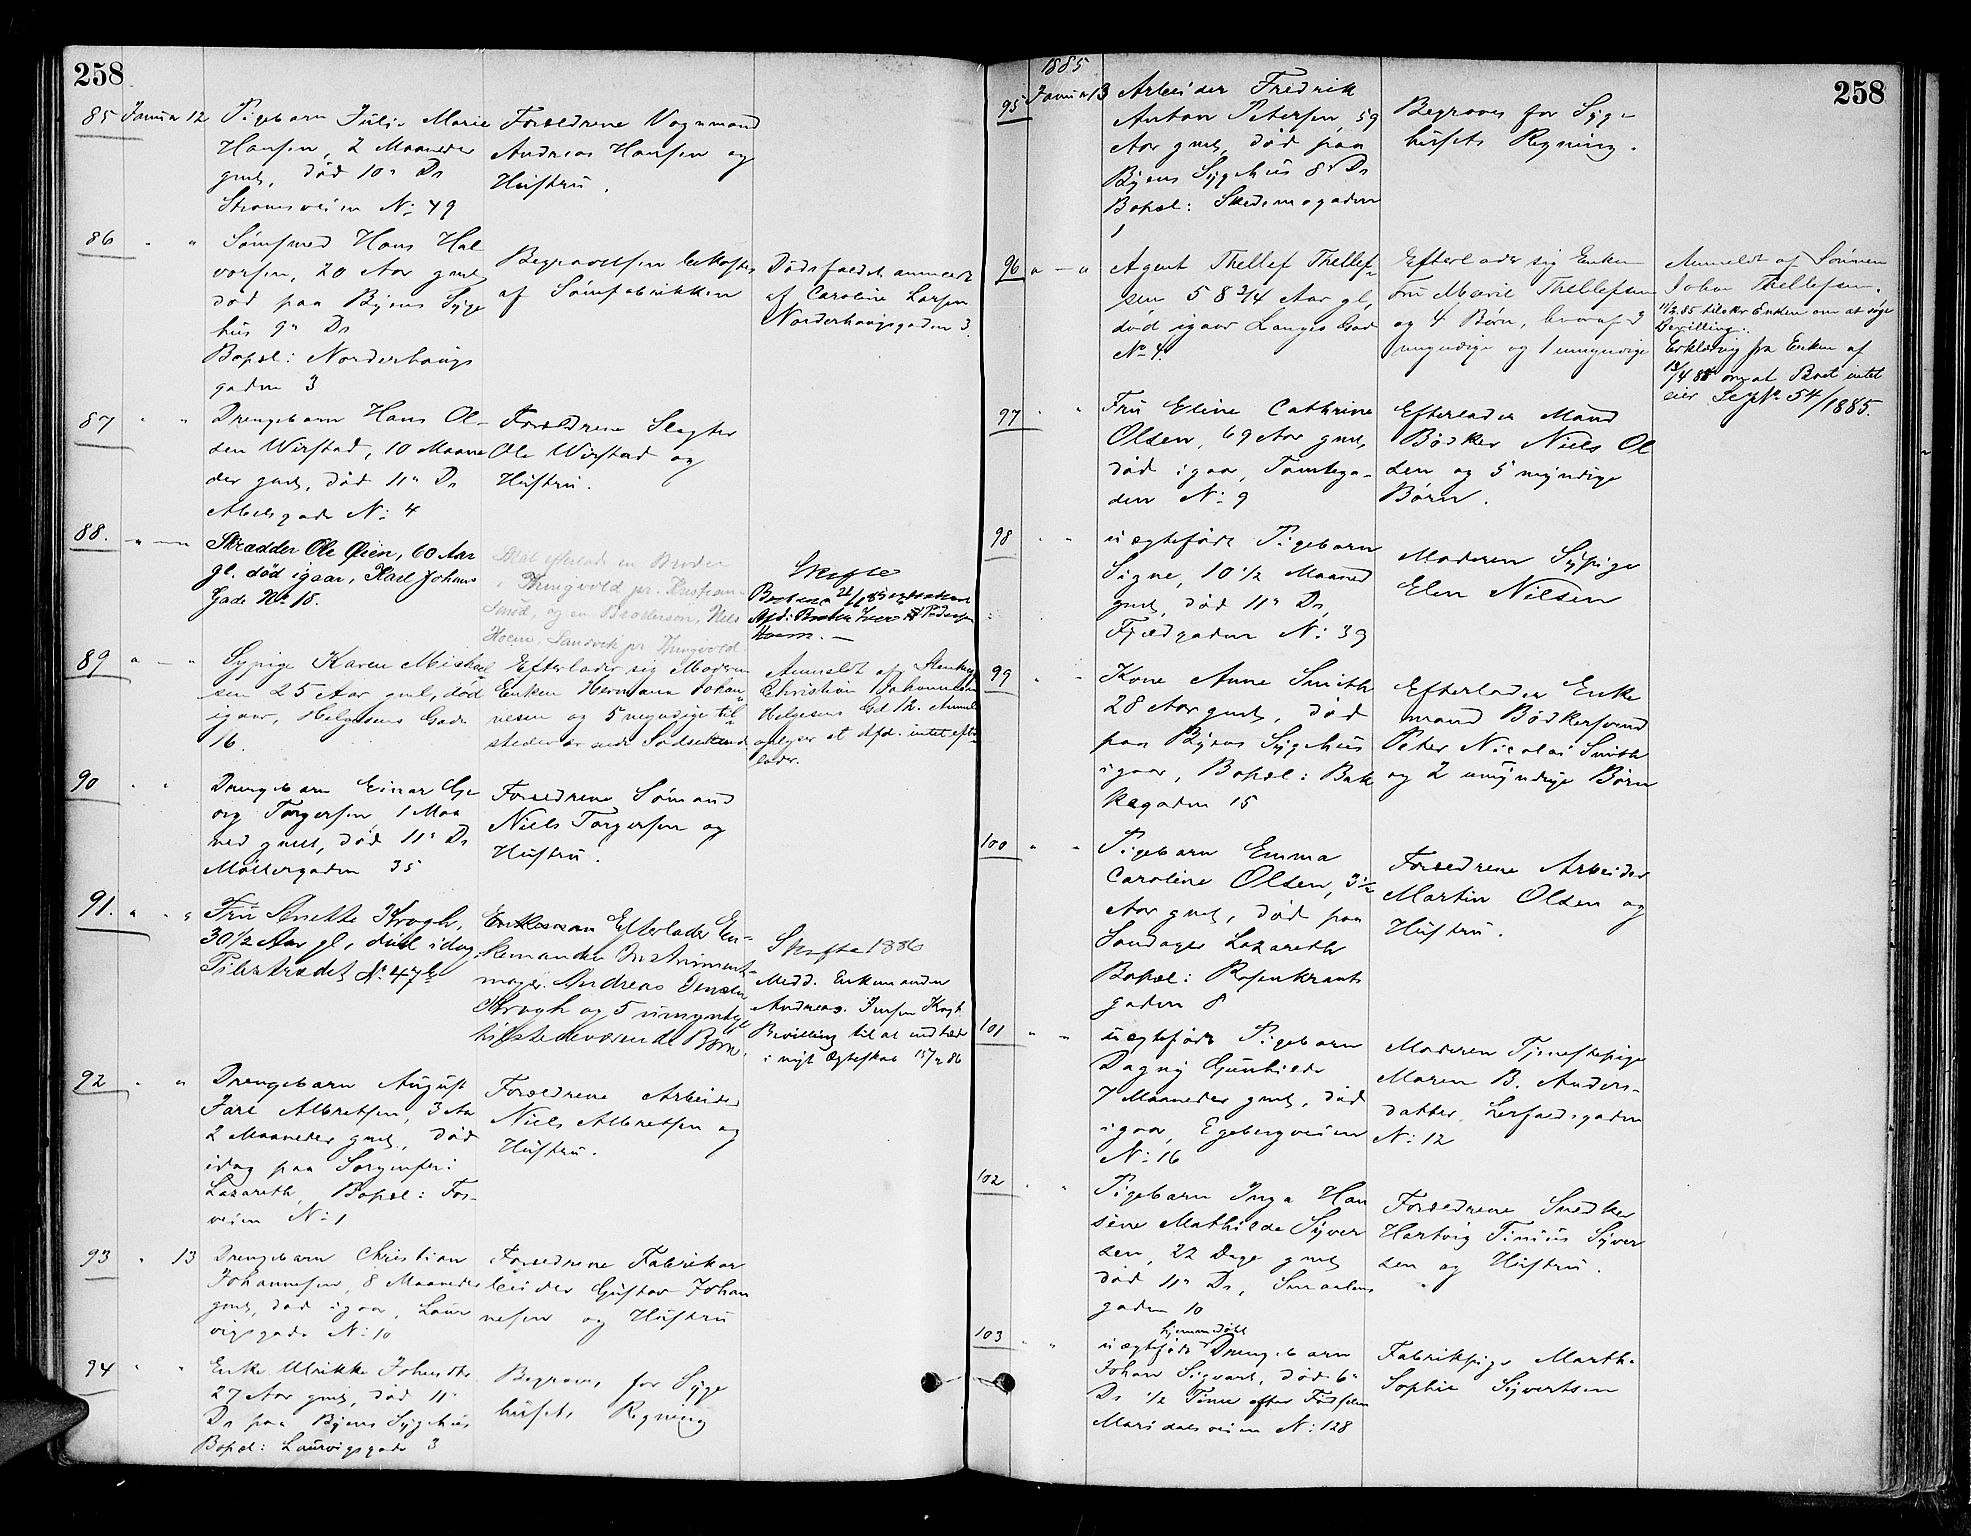 258
85 Januar 12 Pigebarn Julie Marie
Hansen, 2 Maaneder
gml, död 10de Ds
Strömsveien No 49
Forældrene Vognmand
Andreas Hansen og
Hüstrü.
86 " " Sömsmed Hans Hal
vorsen, 20 Aar gml
död paa Byens Syge
hüs 9de Ds
Bopæl: Norderhougs
gaden 3
Begravelsen bekostes
af Sömfabrikken
Dödsfaldet anmeldt
af Caroline Larsen
Norderhougsgaden 3.
87 " " Drengebarn Hans Ol-
sen Wirstad, 10 Maane
der gml, död 11te Ds
Abelsgade No 4
Forældrene Slagter
Ole Wirstad og
Hüstrü.
88. " — " Skrædder Ole Öien, 60 Aar
gl. död igaar, Karl Johans
Gade No 18.
Skal efterlade en Broder
i Thingvold pr. Kristian-
sund, og en Brodersøn, Nels
Hoem, Sandvik pr Thingvold.
Skifte
89 " — " Sypige Karen Michael
sen 25 Aar gml, död
igaar, Helgesens Gade
16.
Efterlader sig Moderen
Enken Hermana Johan
nesen og 5 myndige til
stedeværende Sødskende
Anmeldt af Stenhug
Christian Johannesen
Helgesens Gd 16. Anmel
oplyser at Afd. intet efter-
lader.
90 " " Drengebarn Einar Ge
org Torgersen, 1 Maa
ned gml, död 11te Ds
Möllergaden 35
Forældrene Sömand
Niels Torgersen og
Hüstrü.
91. " " Frü Anette Krogh,
30 1/2 Aar gl, död idag
Pilestrædet No 47b
Efterlader En-
kemanden Instrument-
mager Andreas Jensen
Krogh og 5 umyndige
tilstedeværende Børn.
Skifte 1886
Medd. Enkemanden
Andreas Jensen Krogh
Bevilling til at indtræde
i nyt Ægteskab 15/2 86
92 " " Drengebarn August
Jarl Albretsen, 3 Aar
2 Maaneder gml, död
idag paa Sorgenfri
Lazareth, Bopæl: Fos-
veien No 1
Forældrene Arbeider
Niels Albretsen og
Hüstrü.
93 " 13 Drengebarn Christian
Johannesen, 8 Maaneder
gml, död igaar, Laur
vigsgade No 10
Forældrene Fabrikar
beider Gustav Johan
nesen og Hüstrü
94 " " Enke Ulrikke
27 Aar gml, död 11te
Ds paa Byens Sygehüs
Bopæl: Laurvigsgade 3
Begraves for Syge
hüsets Regning
258
1885
95 Januar 13 Arbeider Fredrik
Anton Petersen, 59
Aar gml, död paa
Byens Sygehüs 8de Ds
Bopæl: Skedsmogaden
1
Begraves for Syge-
hüsets Regning.
96 " — " Agent Thellef Thellef-
sen 58 3/4 Aar gl,
död igaar Langes Gad
No 4.
Efterlader sig Enken
Frü Marie Thellefsen
og 4 Børn, hvoraf 3
myndige og 1 umyndige
Anmeldt af Sønnen
Johan Thellefsen.
11/2 85 tilskr Enken om at søge
Bevilling.
Erklæring fra Enken af
13/4 85 om at Boet intet
eier 54/1885.
97 " " Frü Eline Cathrine
Olsen, 69 Aar gml,
död igaar, Tomtega-
den No 9
Efterlader Mand
Bödker Niels Ol
sen og 5 myndige
Børn.
98 " " üægtefödt Pigebarn
Signe, 10 1/2 Maaned
gml, död 11te Ds,
Fjeldgaden No 39
Moderen Sypige
Elen Nilsen
99 " " Kone Anne Smith
28 Aar gml, död
paa Byens Sygehüs
igaar, Bopæl: Bak
kegaden 15
Efterlader Enke
mand Bödkersvend
Peter Nicolai Smith
og 2 umyndige Børn
100 " " Pigebarn Emma
Caroline Olsen, 3 1/2
Aar gml, död paa
Lazareth
Bopæl: Rosenkrants
gaden 8
Forældrene Arbeider
Martin Olsen og
Hüstrü.
101 " " üægtefödt Pigebarn
Dagny Günhilde
7 Maaneder gml, död
igaar, Egebergveien
No 16
Moderen Tjenestepige
Maren B. Anders-
datter, Lerfaldsgaden
No 12
102 " " Pigebarn Inga Han
sine Mathilde Syver
sen, 22 Dage gml
död 11te Ds, Smaalens
gaden 10
Forældrene Snedker
Hartvig Tinius Syver
sen og Hüstrü.
103 " hjemmedöbt
üægtefödt Drengebarn
Johan Sigvart, död 6te
Ds 1/2 Time efter Födselen
Maridalsveien No 128
Fabrikpige Marthe
Sophie Syvertsen